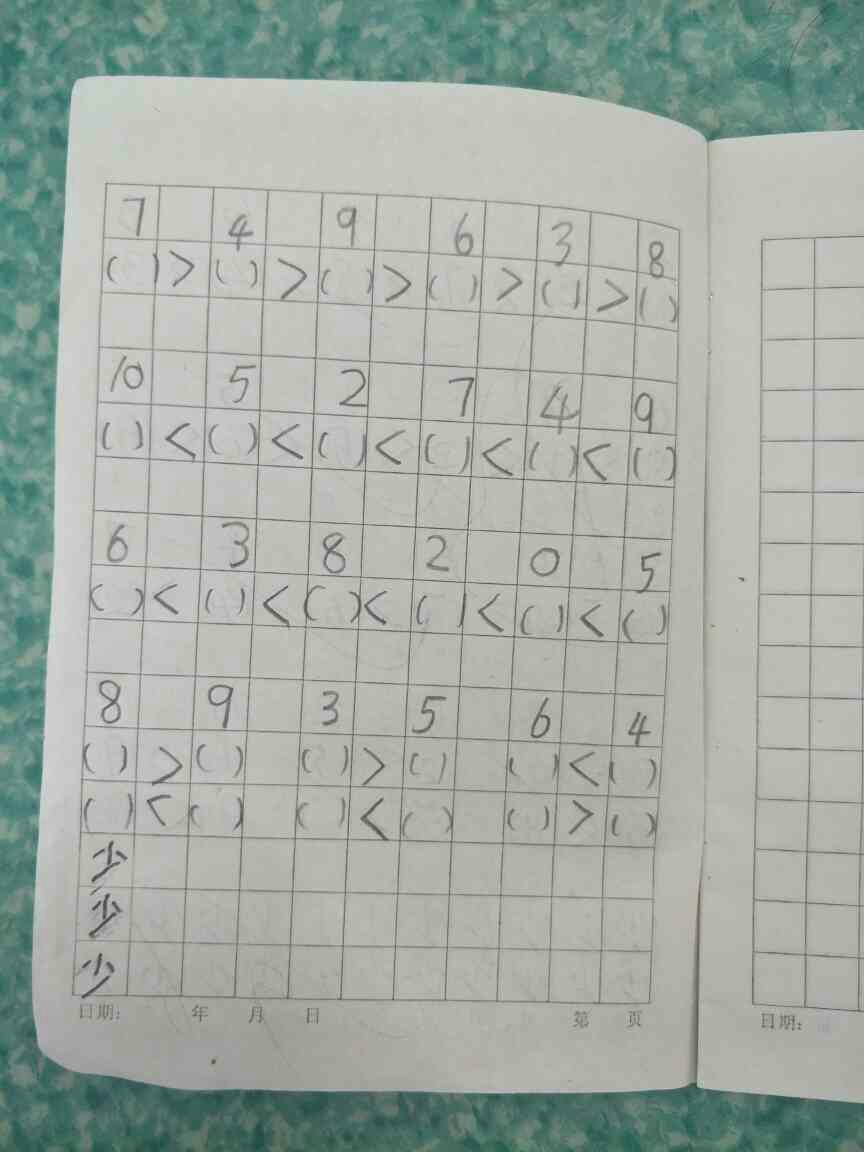 7 4 9 6 3 8
( ) > ( ) > ( ) > ( ) > ( ) > ( )
10 5 2 7 4 9
( ) < ( ) < ( ) < ( ) < ( ) < ( )
6 3 8 2 0 5
( ) < ( ) < ( ) < ( ) < ( ) < ( )
8 9 3 5 6 4
( ) > ( ) ( ) > ( ) ( ) < ( )
( ) < ( ) ( ) < ( ) ( ) > ( )
少
少
少
日期: 年 月 日 第 页
日期: